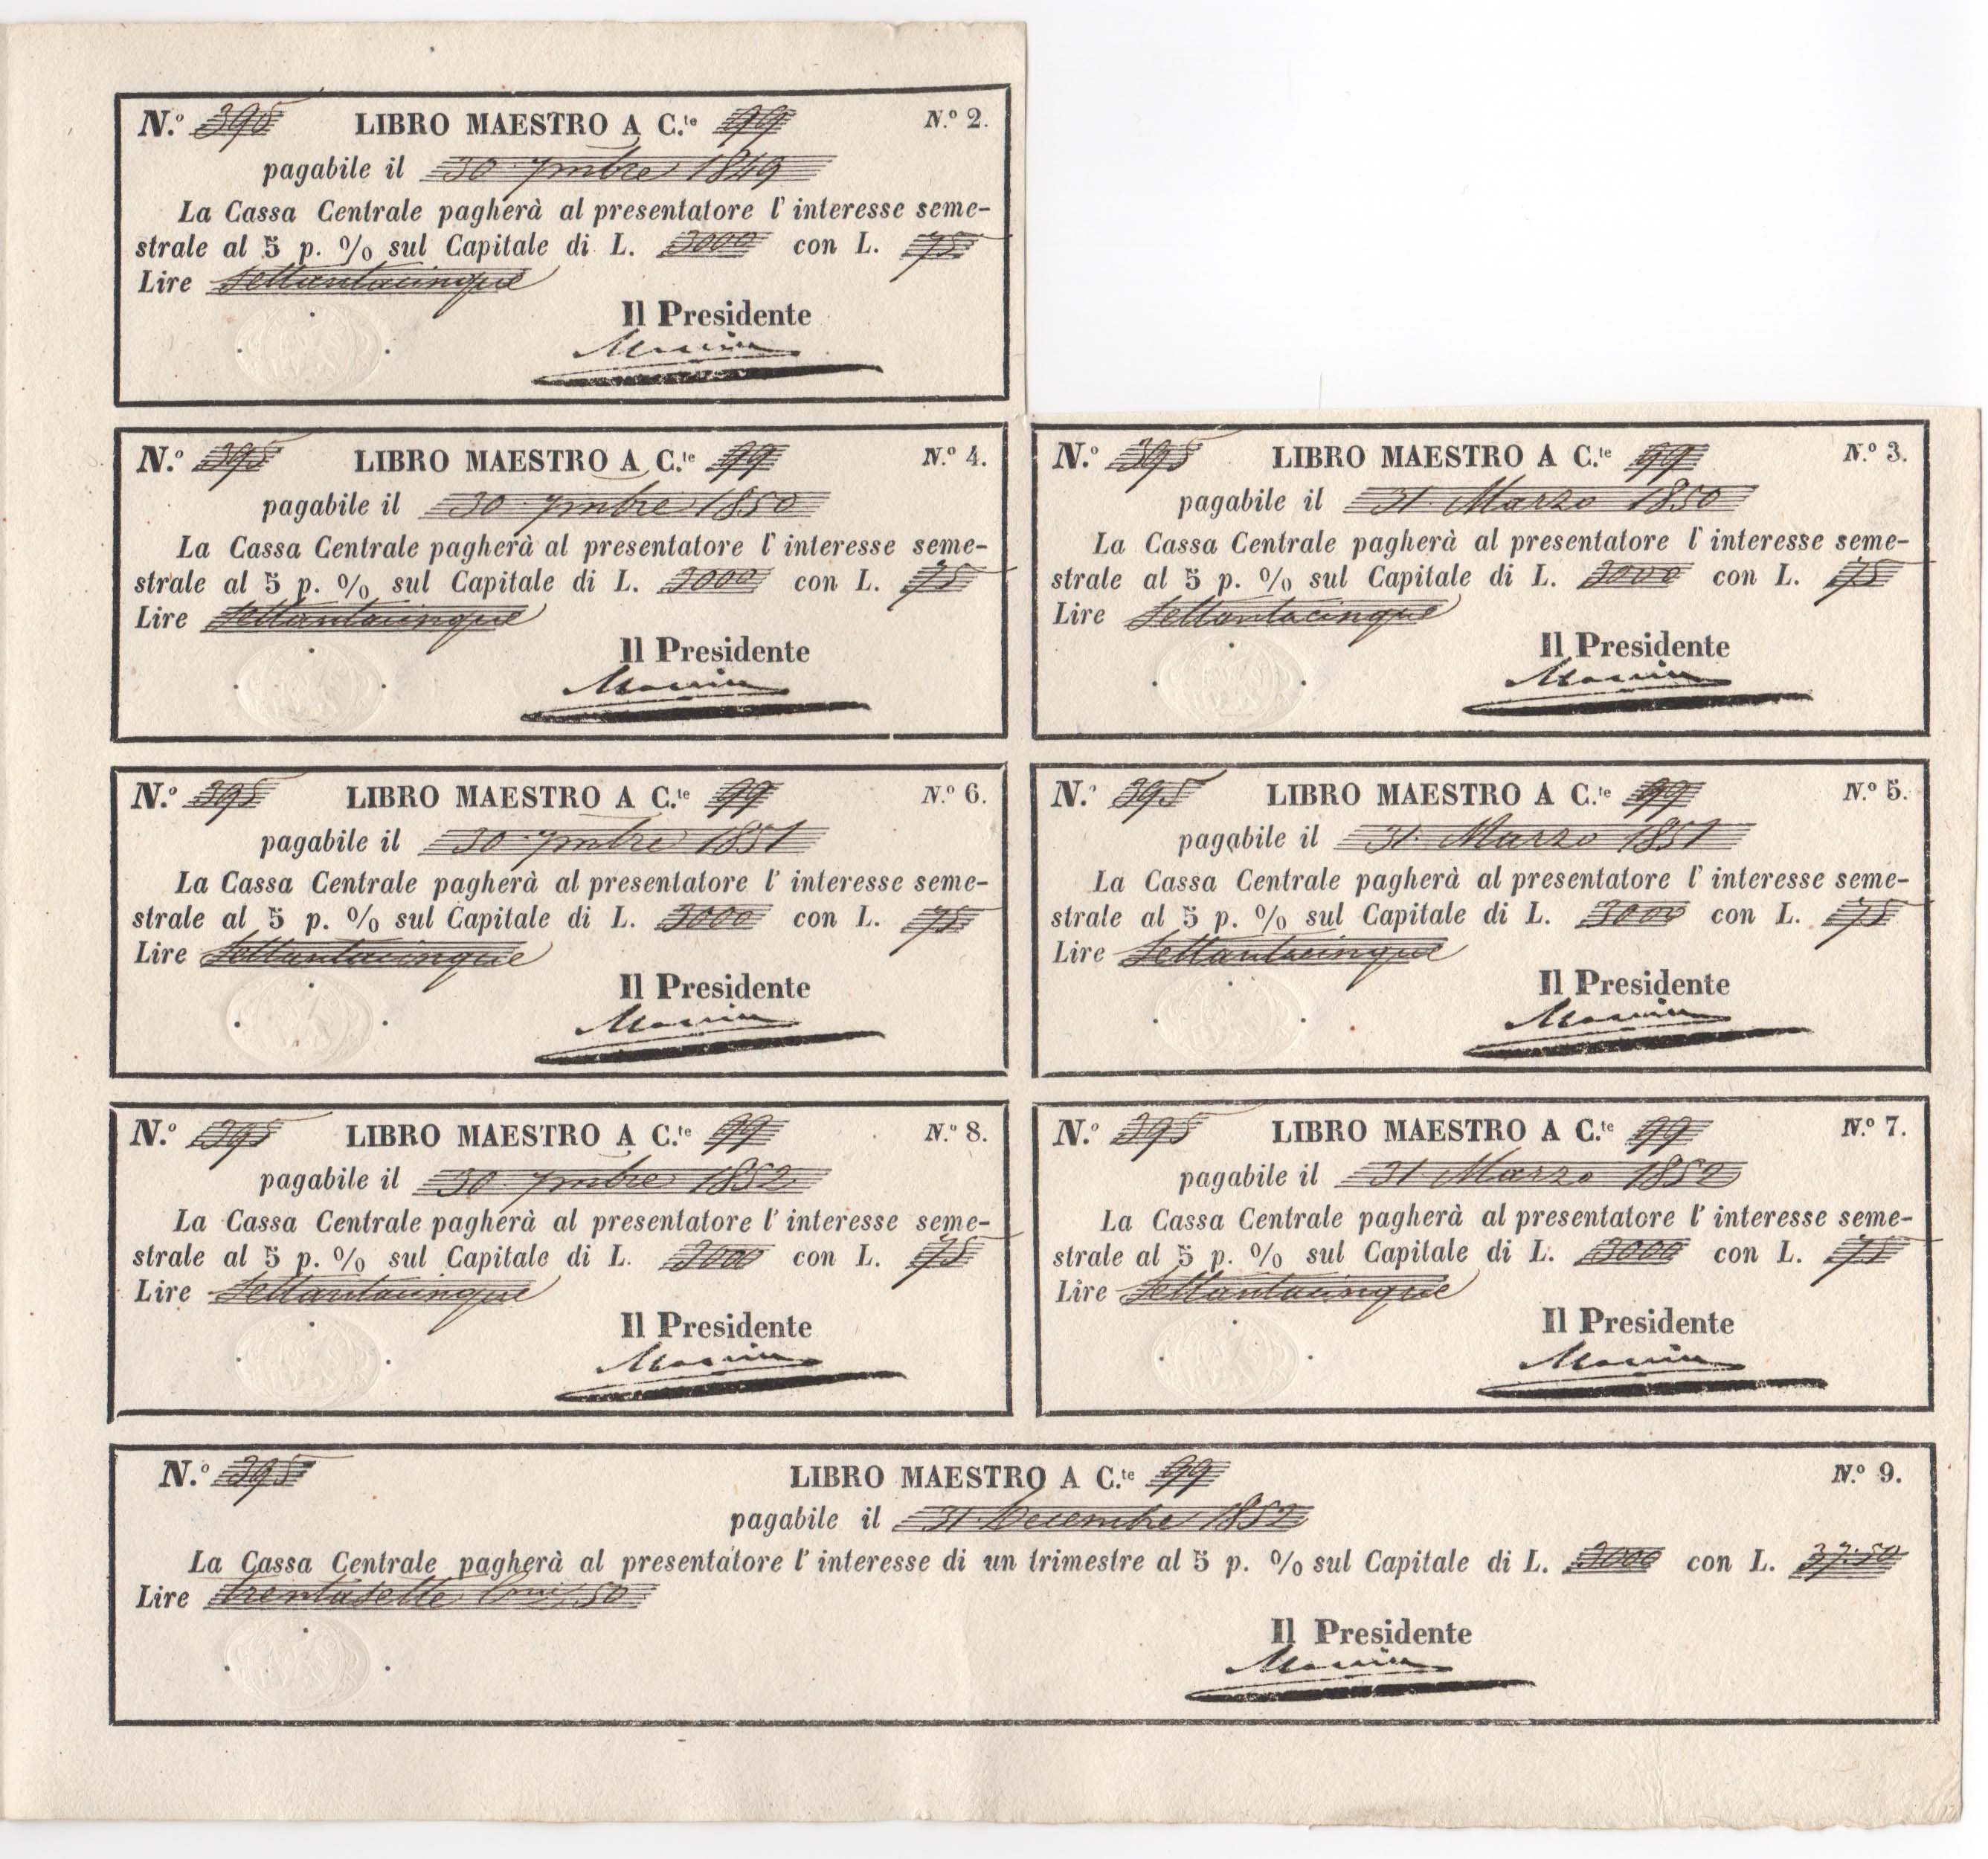 N.º 395 LIBRO MAESTRO A C.te 99 N.º 2.
pagabile il 30 7mbre 1849
La Cassa Centrale pagherà al presentatore l' interesse seme-
strale al 5 p. % sul Capitale di L. 3000 con L. 75
Lire Settantacinque
Il Presidente
N.º 395 LIBRO MAESTRO A C.te 99 N.º 4.
pagabile il 30 7mbre 1850
La Cassa Centrale pagherà al presentatore l' interesse seme-
strale al 5 p. % sul Capitale di L. 3000 con L. 75
Lire Settantacinque
Il Presidente
N.º 395 LIBRO MAESTRO A C.te 99 N.º 3.
pagabile il 31 Marzo 1850
La Cassa Centrale pagherà al presentatore l' interesse seme-
strale al 5 p. % sul Capitale di L. 3000 con L. 75
Lire Settantacinque
Il Presidente
N.º 395 LIBRO MAESTRO A C.te 99 N.º 6.
pagabile il 30 7mbre 1851
La Cassa Centrale pagherà al presentatore l' interesse seme-
strale al 5 p. % sul Capitale di L. 3000 con L. 75
Lire Settantacinque
Il Presidente
N.º 395 LIBRO MAESTRO A C.te 99 N.º 5.
pagabile il 31 Marzo 1851
La Cassa Centrale pagherà al presentatore l' interesse seme-
strale al 5 p. % sul Capitale di L. 3000 con L. 75
Lire Settantacinque
Il Presidente
N.º 395 LIBRO MAESTRO A C.te 99 N.º 8.
pagabile il 30 7mbre 1852
La Cassa Centrale pagherà al presentatore l' interesse seme-
strale al 5 p. % sul Capitale di L. 3000 con L. 75
Lire Settantacinque
Il Presidente
N.º 395 LIBRO MAESTRO A C.te 99 N.º 7.
pagabile il 31 Marzo 1852
La Cassa Centrale pagherà al presentatore l' interesse seme-
strale al 5 p. % sul Capitale di L. 3000 con L. 75
Lire Settantacinque
Il Presidente
N.º 395 LIBRO MAESTRO A C.te 99 N.º 9.
pagabile il 31 Decembre 1852
La Cassa Centrale pagherà al presentatore l' interesse di un trimestre al 5 p. % sul Capitale di L. 3000 con L. 37:50
Lire trentasette 50
Il Presidente